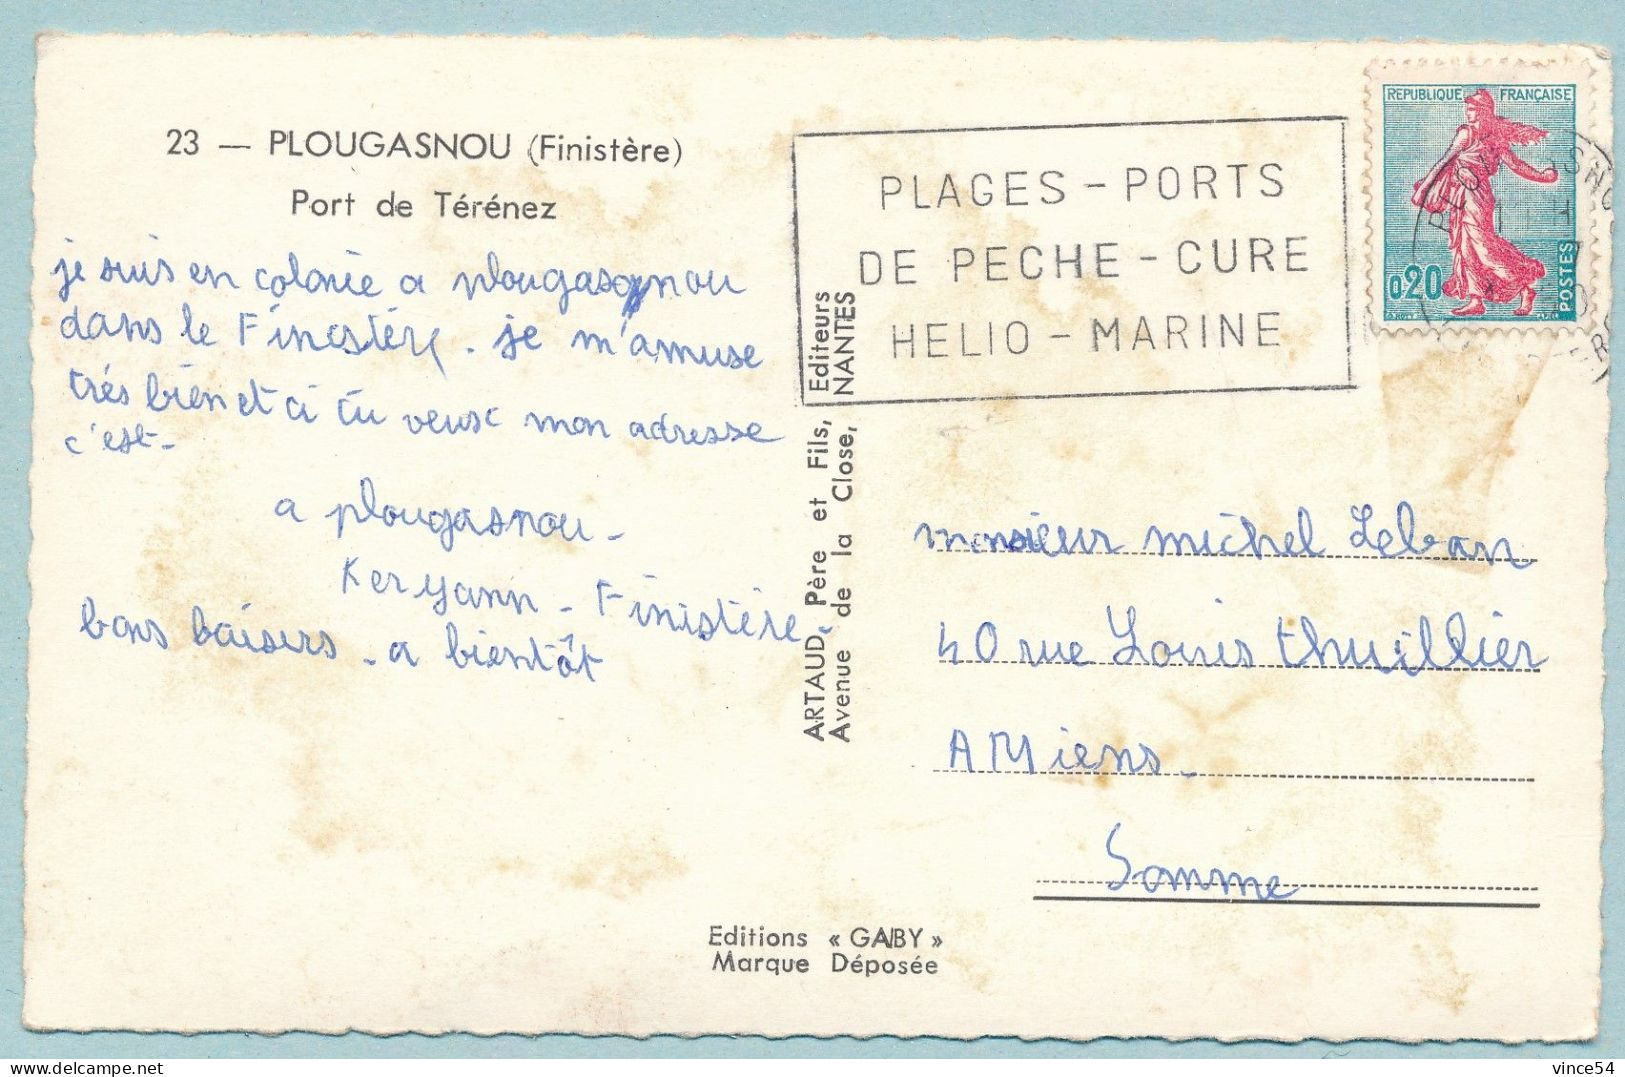 23 — PLOUGASNOU (Finistère)
Port de Térénez
je suis en colonie a plougasgnou
dans le Finistère. je m'amuse
très bien et ci tu veux mon adresse
c'est-
a plougasnou-
Keryann - Finistère-
bons baisers - a bientôt
ARTAUD Père et Fils, Editeurs
Avenue de la Close, NANTES
PLAGES - PORTS
DE PECHE - CURE
HELIO - MARINE
REPUBLIQUE FRANÇAISE
0,20
POSTES
monsieur michel Leban
40 rue Louis thuillier
AMiens-
Somme
Editions « GABY »
Marque Déposée
delcampe.net
vince54